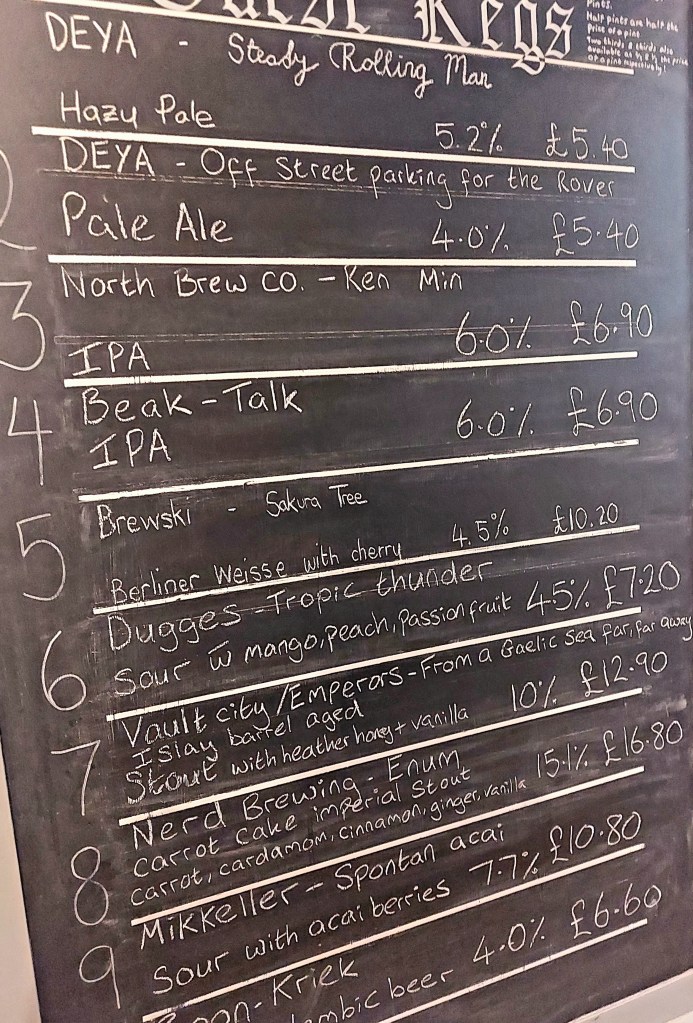 Guest Kegs
Pints.
Half pints are half the
Price of a pint
Two thirds & thirds also
available at ⅔ & ⅓ the price
of a pint respectively!
DEYA - Steady Rolling Man
Hazy Pale 5.2% £5.40
2
DEYA - Off Street parking for the Rover
Pale Ale 4.0% £5.40
3
North Brew co. - Ken Min
IPA 6.0% £6.90
4
Beak - Talk
IPA 6.0% £6.90
5
Brewski - Sakura Tree
Berliner Weisse with cherry 4.5% £10.20
6
Dugges - Tropic thunder
Sour w̄ mango, peach, passionfruit 4.5% £7.20
7
Vault city / Emperors - From a Gaelic Sea far, far away
Islay barrel aged
Stout with heather honey + vanilla 10% £12.90
8
Nerd Brewing - Enum
Carrot Cake imperial Stout
carrot, cardamom, cinnamon, ginger, vanilla 15.1% £16.80
9
Mikkeller - Spontan acai
Sour with acai berries 7.7% £10.80
Boon - Kriek
lambic beer 4.0% £6.60